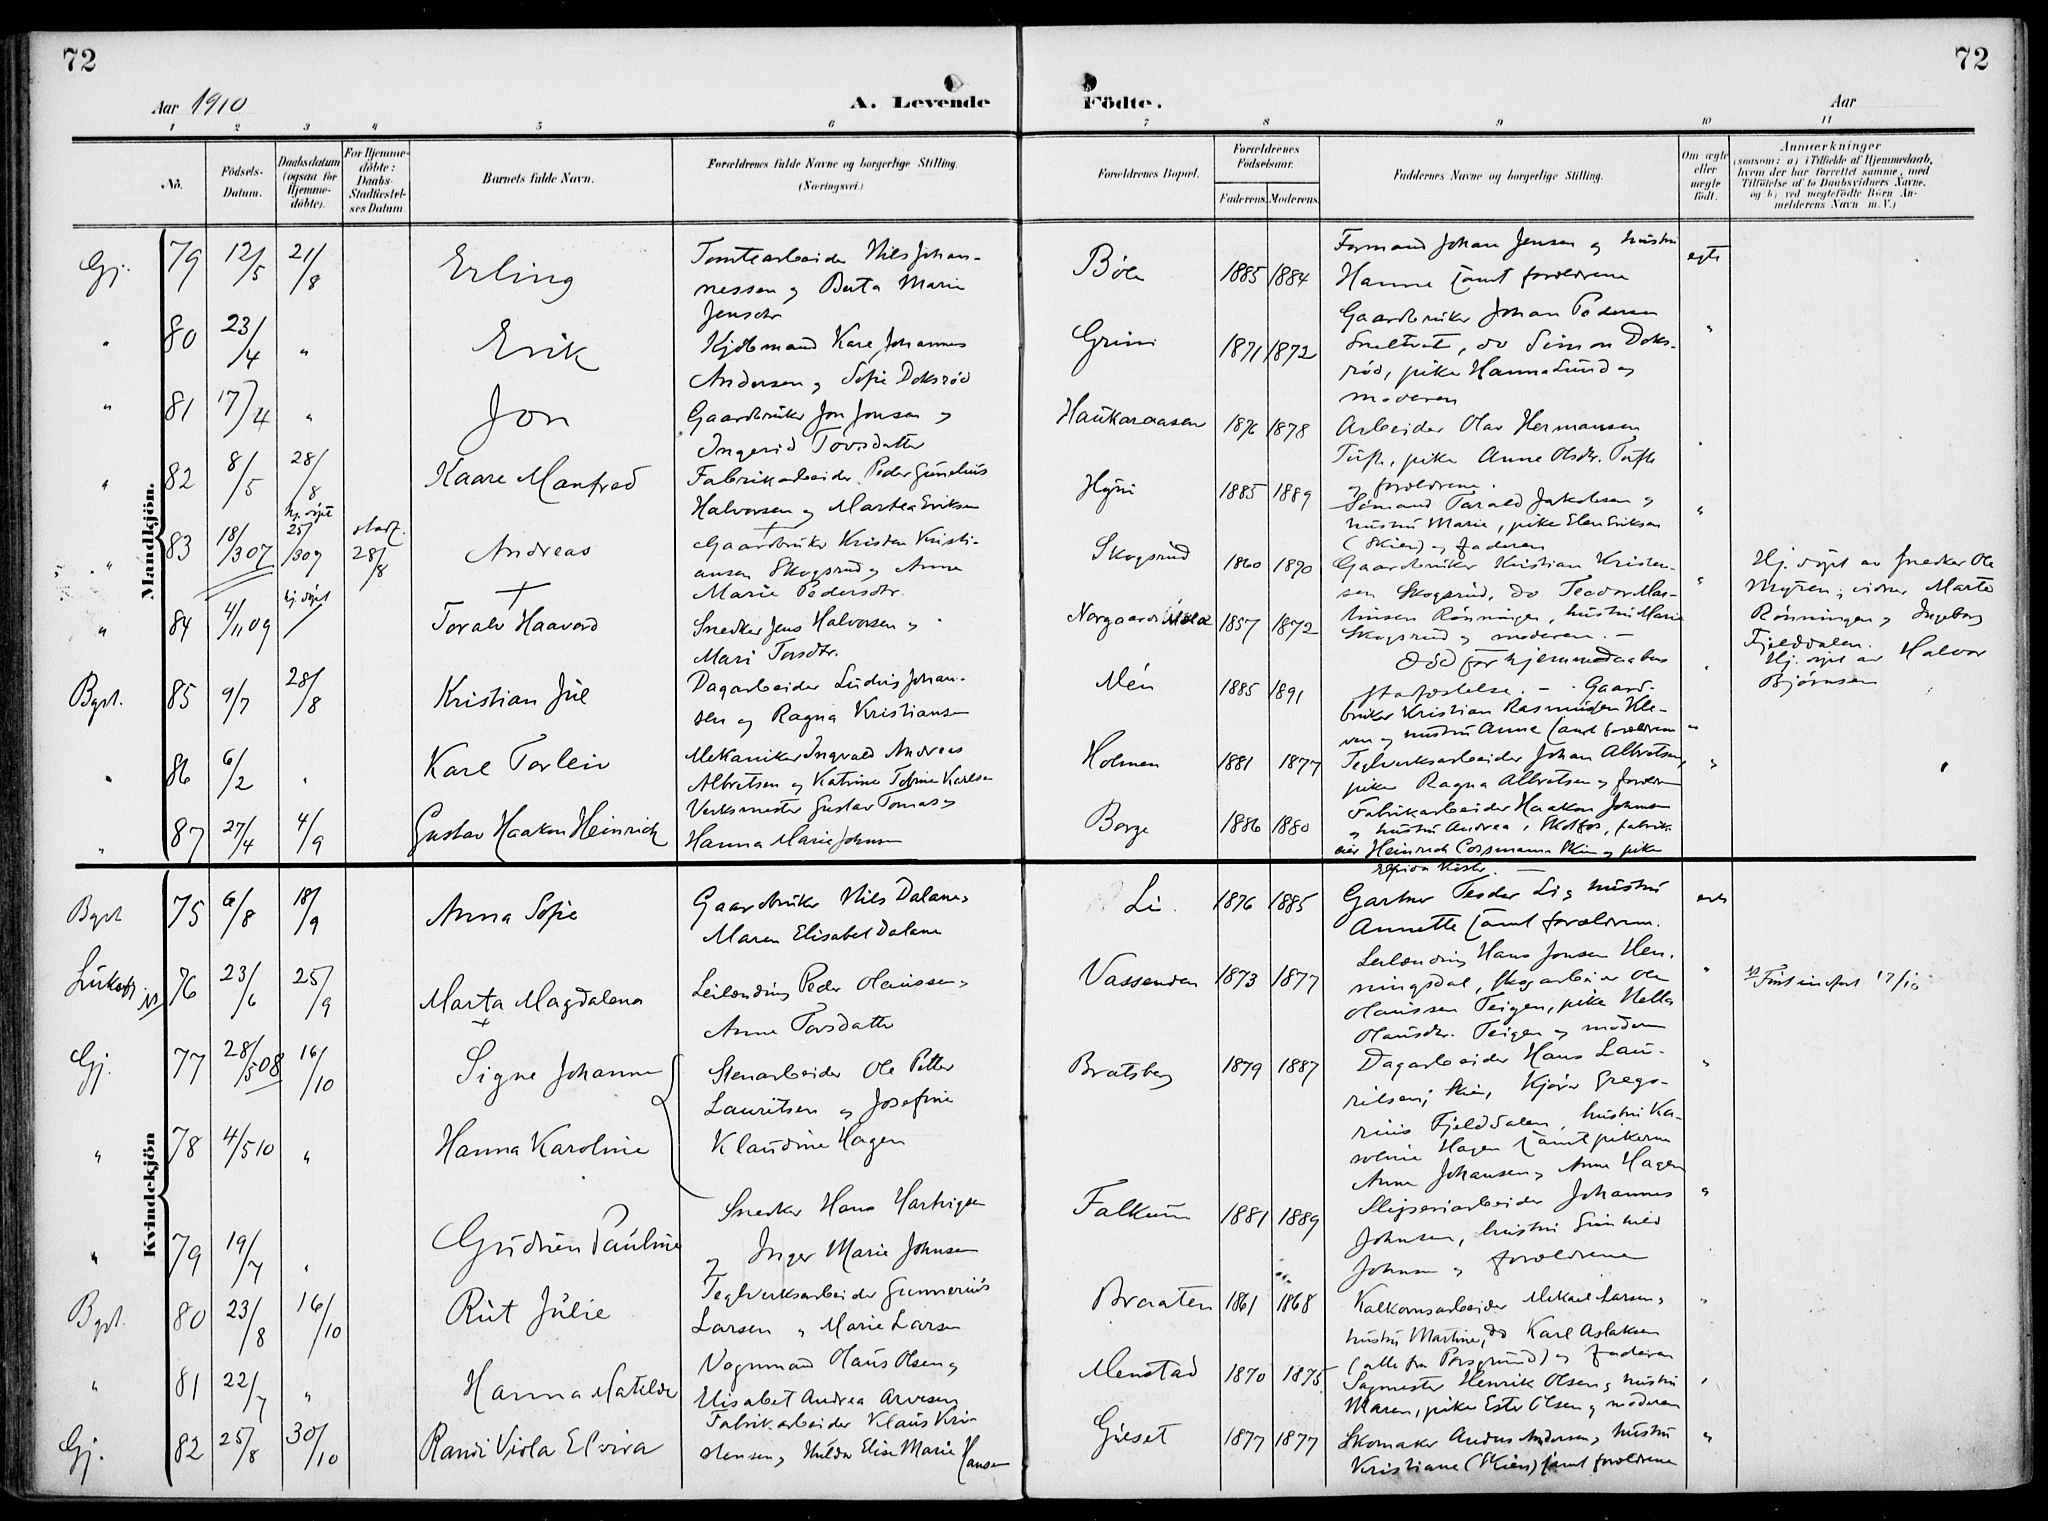 72
72
Aar 1910
A. Levende
Födte.
Aar
1 2 3 4 5 6 7 8 9 10 11
No.
Födsels-Datum.
Daabsdatum (ogsaa for Hjemme-döbte).
For Hjemme-döbte: Daabs-Stadfæstel-ses Datum.
Barnets fulde Navn.
Forældrenes fulde Navne og borgerlige Stilling. (Næringsvei.)
Forældrenes Bopæl.
Forældrenes Födselsaar.
Faderens. Moderens.
Faddernes Navne og borgerlige Stilling.
Om ægte eller uægte födt.
Anmærkninger
(saasom: a) i Tilfælde af Hjemmedaab, hvem der har forrettet samme, med Tilföielse af to Daabsvidners Navne. og b) ved uegtefödte Börn An-melderens Navn m. V.)
Mandkjön.
Gj. 79 12/5 21/8 Erling
Tomtearbeider Nils Johan-
nessen og Berta Marie
Jensdtr
Böle 1885 1884
Formand Johan Jensen og hustru
Hanne samt forældrene
egte
" 80 23/4 " Erik
Kjöbmand Karl Johannes
Andersen og Sofie Doksröd
Grini 1871 1872
Gaardbruker Johan Pedersen
Sneltvet, do Simon Doks-
röd, pike Hanna Lund og
moderen
"
" 81 17/4 " Jon
Gaardbruker Jon Jonsen og
Ingerid Torsdatter
Haukaraasen 1876 1878
Arbeider Olav Hermansen
Tufte, pike Anne Olsdtr. Tufte
og forældrene.
" 82 8/5 28/8 Kaare Manfred
Fabrikarbeider Peder Gunelius
Halvorsen og Martea Eriksen
Hyni 1885 1889
Sömand Tarald Jakobsen og
hustru Marie, pike Elen Eriksen
(Skien) og faderen
"
" 83 18/3 07 hj. döpt 25/3 09 stadf. 28/8 Andreas
Gaardbruker Kristen Kristi-
ansen Skogsrud og Anne
Marie Pedersdtr.
Skogsrud 1860 1870
Gaardbruker Kristian Kristen-
sen Skogsrud, do Teodor Mas-
hinsen Rönningen, hustru Marie
Skogsrud og moderen. -
"
Hj. döpt av snedker Ole
Myren; vidner Marte
Rönningen og Ingeborg
Fjelddalen.
" 84 4/11 09 hj. döpt Toralv Haavord
Snedker Jens Halvorsen og
Mari Torsdtr.
Norgaards 1857 1872
Död för hjemmedaabens
stafæstelse. -
Hj. döpt av Halvor
Björnsen
Bgst. 85 9/7 28/8 Kristian Jul
Dagarbeider Ludvig Johan-
sen og Ragna Kristiansen
Men 1885 1891
Gaard-
bruker Kristian Rasmussen Kle-
ven og hustru Anne samt forældrene
"
" 86 6/2 " Karl Torleiv
Mekaniker Ingvald Andreas
Albretsen og Katrine Tobine Karlsen
Holmen 1881 1877
Teglverksarbeider Johan Albretsen,
pike Ragna Albretsen og foreldrene
"
" 87 27/4 4/9 Gustav Haakon Heinrich
Verksmester Gustav Tomas og
Hanna Marie Johnsen
Borge 1886 1880
Fabrikarbeider Haakon Johnsen
og hustru Andrea, Skotfos, fabrik-
eier Heinrich Skien og pike
Kvindekjön
Bgst 75 6/8 18/9 Anna Sofie
Gaardbruker Nils Dalane og
Maren Elisabet Dalane
Li. 1876 1885
Gartner Teodor Li og hustru
Annette samt forældrene.
egte
76 23/6 25/9 Marta Magdalena
Leilænding Peder Olaussen og
Anne Torsdatter
Vassenden 1873 1877
Leilænding Hans Jonsen Hen-
ningsdal, skogarbeider Ole
Olaussen Teigen, pike Hella
Olausdtr. Teigen og moderen
"
Gj. 77 28/5 08 16/10 Signe Johanne
Stenarbeider Ole Petter
Lauritsen og Josefine
Klaudine Hagen
Bratsberg 1879 1887
Dagarbeider Hans Lau-
ritsen, Skien, Kjörer Grego-
rius Fjelddalen, hustru Ka-
roline Hagen samt pikerne
Anne Johansen og Anne Hagen
"
" 78 4/5 10 " Hanna Karoline
" 79 19/7 " Gudrun Pauline
Snedker Hans Hartvigsen
og Inger Marie Johnsen
Falkum 1881 1889
Sliperiarbeider Johannes
Johnsen, hustru Gunhild
Johnsen og forældrene
"
Bgst. 80 23/8 16/10 Rut Julie
Teglverksarbeider Gunnerius
Larsen og Marie Larsen
Braaten 1861 1868
Kalkovnsarbeider Mikael Larsen og
hustru Martine, do Karl Aslaksen
(alle fra Porsgrund) og faderen
"
" 81 22/7 " Hanna Matilde
Vognmand Olaus Olsen og
Elisabet Andrea Arvesen
Menstad 1870 1875
Sagmester Henrik Olsen og hustru
Maren, pike Ester Olsen og moderen
Gj. 82 25/8 30/10 Randi Viola Elvira
Fabrikarbeider Klaus Kri-
stensen og Hulda Elise Marie Hansen
Gjeset 1877 1877
Skomaker Andreas Andersen og hustru
Kristiane (Skien) samt forældrene
"